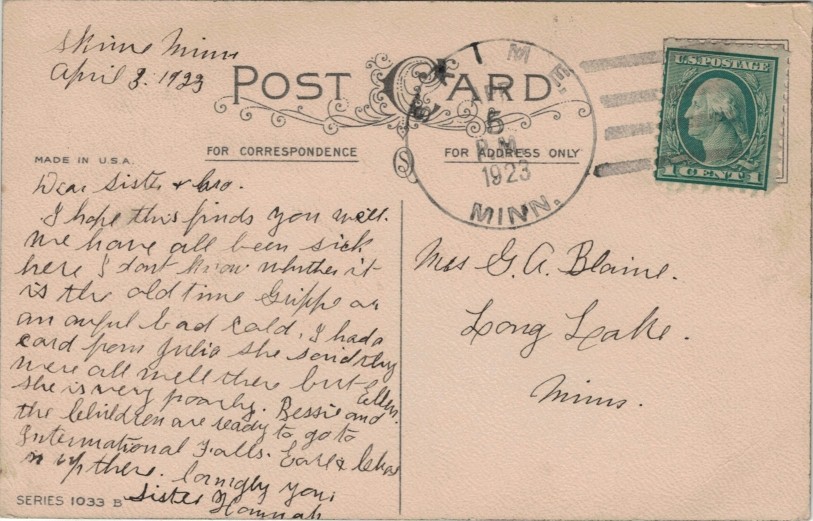 Skime Minn
April 3. 1923
POST CARD
MADE IN U.S.A.
FOR CORRESPONDENCE
FOR ADDRESS ONLY
5
P.M.
1923
MINN.
U.S. POSTAGE
1 CENT 1
Dear Sister & bro.
I hope this finds you well.
We have all been sick
here I dont know whether it
is the old time Grippe or
an awful bad cold. I had a
card from Julia she said they
were all well there but Ellen.
she is very poorly. Bessie and
the Children are ready to go to
International Falls. Earl &
is up there. Lovingly your
Sister Hannah
SERIES 1033 B
Mrs G. A. Blaine.
Long Lake.
Minn.